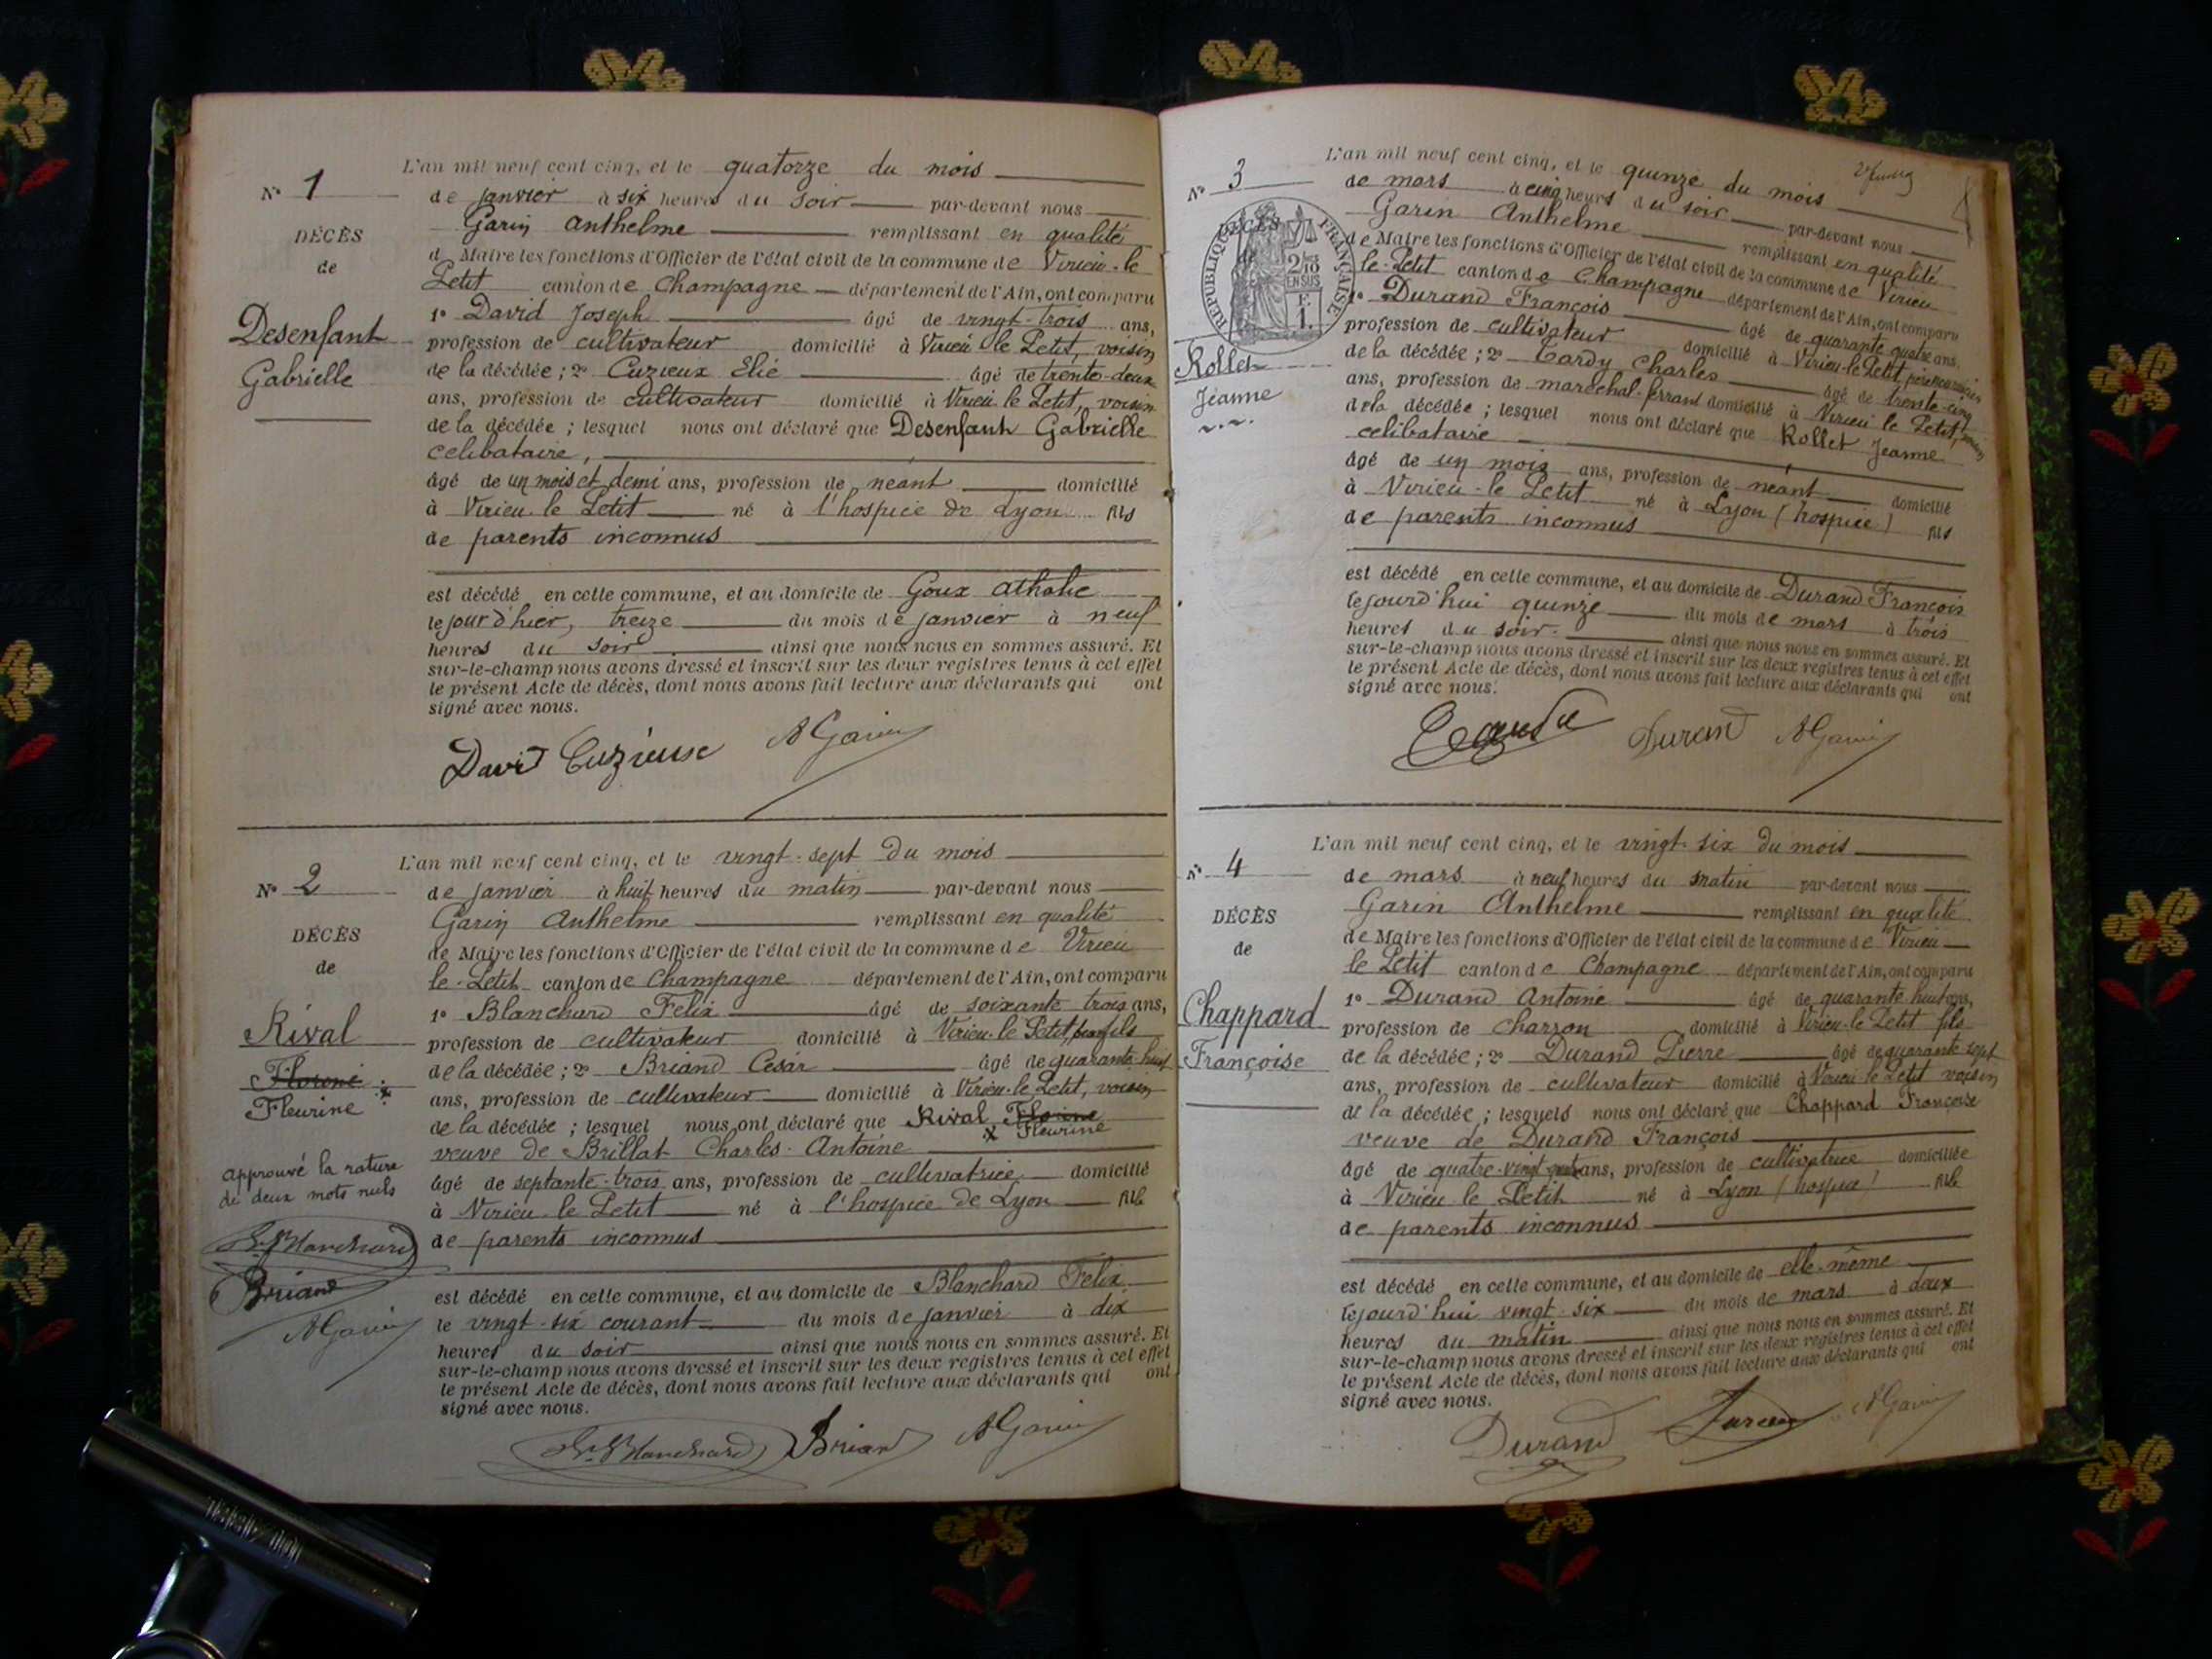 N° 1
DÉCÈS
de
Desenfant
Gabrielle
L'an mil neuf cent cinq, et le quatorze du mois
de janvier à six heures du soir par-devant nous
Garin Anthelme remplissant en qualité
d Maire les fonctions d'Officier de l'état civil de la commune de Virieu-le
Petit canton de Champagne département de l'Ain, ont comparu
1° David Joseph âgé de vingt-trois ans,
profession de cultivateur domicilié à Virieu le Petit, voisin
de la décédée ; 2° Cuzieux Elie âgé de trente-deux
ans, profession de cultivateur domicilié à Virieu le Petit, voisin
de la décédée ; lesquel nous ont déclaré que Desenfant Gabrielle
celibataire,
âgé de un mois et demi ans, profession de néant domicilié
à Virieu le Petit né à l'hospice de Lyon fils
de parents inconnus
est décédé en cette commune, et au domicile de Goux Athalie
le jour d'hier, treize du mois de janvier à neuf
heures du soir ainsi que nous nous en sommes assuré. Et
sur-le-champ nous avons dressé et inscrit sur les deux registres tenus à cet effet
le présent Acte de décès, dont nous avons fait lecture aux déclarants qui ont
signé avec nous.
David Cuzieux AGarin
N° 2
DÉCÈS
de
Rival
Florine
Fleurine
approuvé la rature
de deux mots nuls
Blanchard
Briand
AGarin
L'an mil neuf cent cinq, et le vingt-sept du mois
de janvier à huit heures du matin par-devant nous
Garin Anthelme remplissant en qualité
de Maire les fonctions d'Officier de l'état civil de la commune de Virieu
le-Petit canton de Champagne département de l'Ain, ont comparu
1° Blanchard Felix âgé de soixante trois ans,
profession de cultivateur domicilié à Virieu-le Petit, beau fils
de la décédée ; 2° Briand César âgé de quarante huit
ans, profession de cultivateur domicilié à Virieu-le Petit, voisin
de la décédée ; lesquel nous ont déclaré que Rival Florine
x Fleurine
veuve de Brillat Charles-Antoine
âgé de septante-trois ans, profession de cultivatrice domicilié
à Virieu le Petit né à l'hospice de Lyon fille
de parents inconnus
est décédé en cette commune, et au domicile de Blanchard Felix
le vingt-six courant du mois de janvier à dix
heures du soir ainsi que nous nous en sommes assuré. Et
sur-le-champ nous avons dressé et inscrit sur les deux registres tenus à cet effet
le présent Acte de décès, dont nous avons fait lecture aux déclarants qui ont
signé avec nous.
Blanchard Briand AGarin
N° 3
DÉCÈS
de
RÉPUBLIQUE FRANÇAISE
2/10
EN SUS
F.
1.
Rollet
Jeanne
L'an mil neuf cent cinq, et le quinze du mois
de mars à cinq heures du soir par-devant nous
Garin Anthelme remplissant en qualité
de Maire les fonctions d'Officier de l'état civil de la commune de Virieu
le-Petit canton de Champagne département de l'Ain, ont comparu
1° Durand François âgé de quarante quatre ans
profession de cultivateur domicilié à Virieu-le Petit, père nourricier
de la décédée ; 2° Tardy Charles âgé de trente-cinq
ans, profession de maréchal-ferrant domicilié à Virieu le Petit, voisin
de la décédée ; lesquel nous ont déclaré que Rollet Jeanne
celibataire
âgé de un mois ans, profession de néant domicilié
à Virieu-le Petit né à Lyon (hospice) fils
de parents inconnus
est décédé en cette commune, et au domicile de Durand François
le jourd'hui quinze du mois de mars à trois
heures du soir. ainsi que nous nous en sommes assuré. Et
sur-le-champ nous avons dressé et inscrit sur les deux registres tenus à cet effet
le présent Acte de décès, dont nous avons fait lecture aux déclarants qui ont
signé avec nous.
Durand AGarin
N° 4
DÉCÈS
de
Chappard
Françoise
L'an mil neuf cent cinq, et le vingt-six du mois
de mars à neuf heures du matin par-devant nous
Garin Anthelme remplissant en qualité
de Maire les fonctions d'Officier de l'état civil de la commune de Virieu
le Petit canton de Champagne département de l'Ain, ont comparu
1° Durand Antoine âgé de quarante huit ans,
profession de charron domicilié à Virieu-le Petit fils
de la décédée ; 2° Durand Pierre âgé de quarante sept
ans, profession de cultivateur domicilié à Virieu le Petit voisin
de la décédée ; lesquels nous ont déclaré que Chappard Françoise
veuve de Durand François
âgé de quatre-vingt ans, profession de cultivatrice domiciliée
à Virieu le Petit né à Lyon (hospice) fille
de parents inconnus
est décédé en cette commune, et au domicile de elle-même
le jourd'hui vingt-six du mois de mars à deux
heures du matin ainsi que nous nous en sommes assuré. Et
sur-le-champ nous avons dressé et inscrit sur les deux registres tenus à cet effet
le présent Acte de décès, dont nous avons fait lecture aux déclarants qui ont
signé avec nous.
Durand Durand AGarin